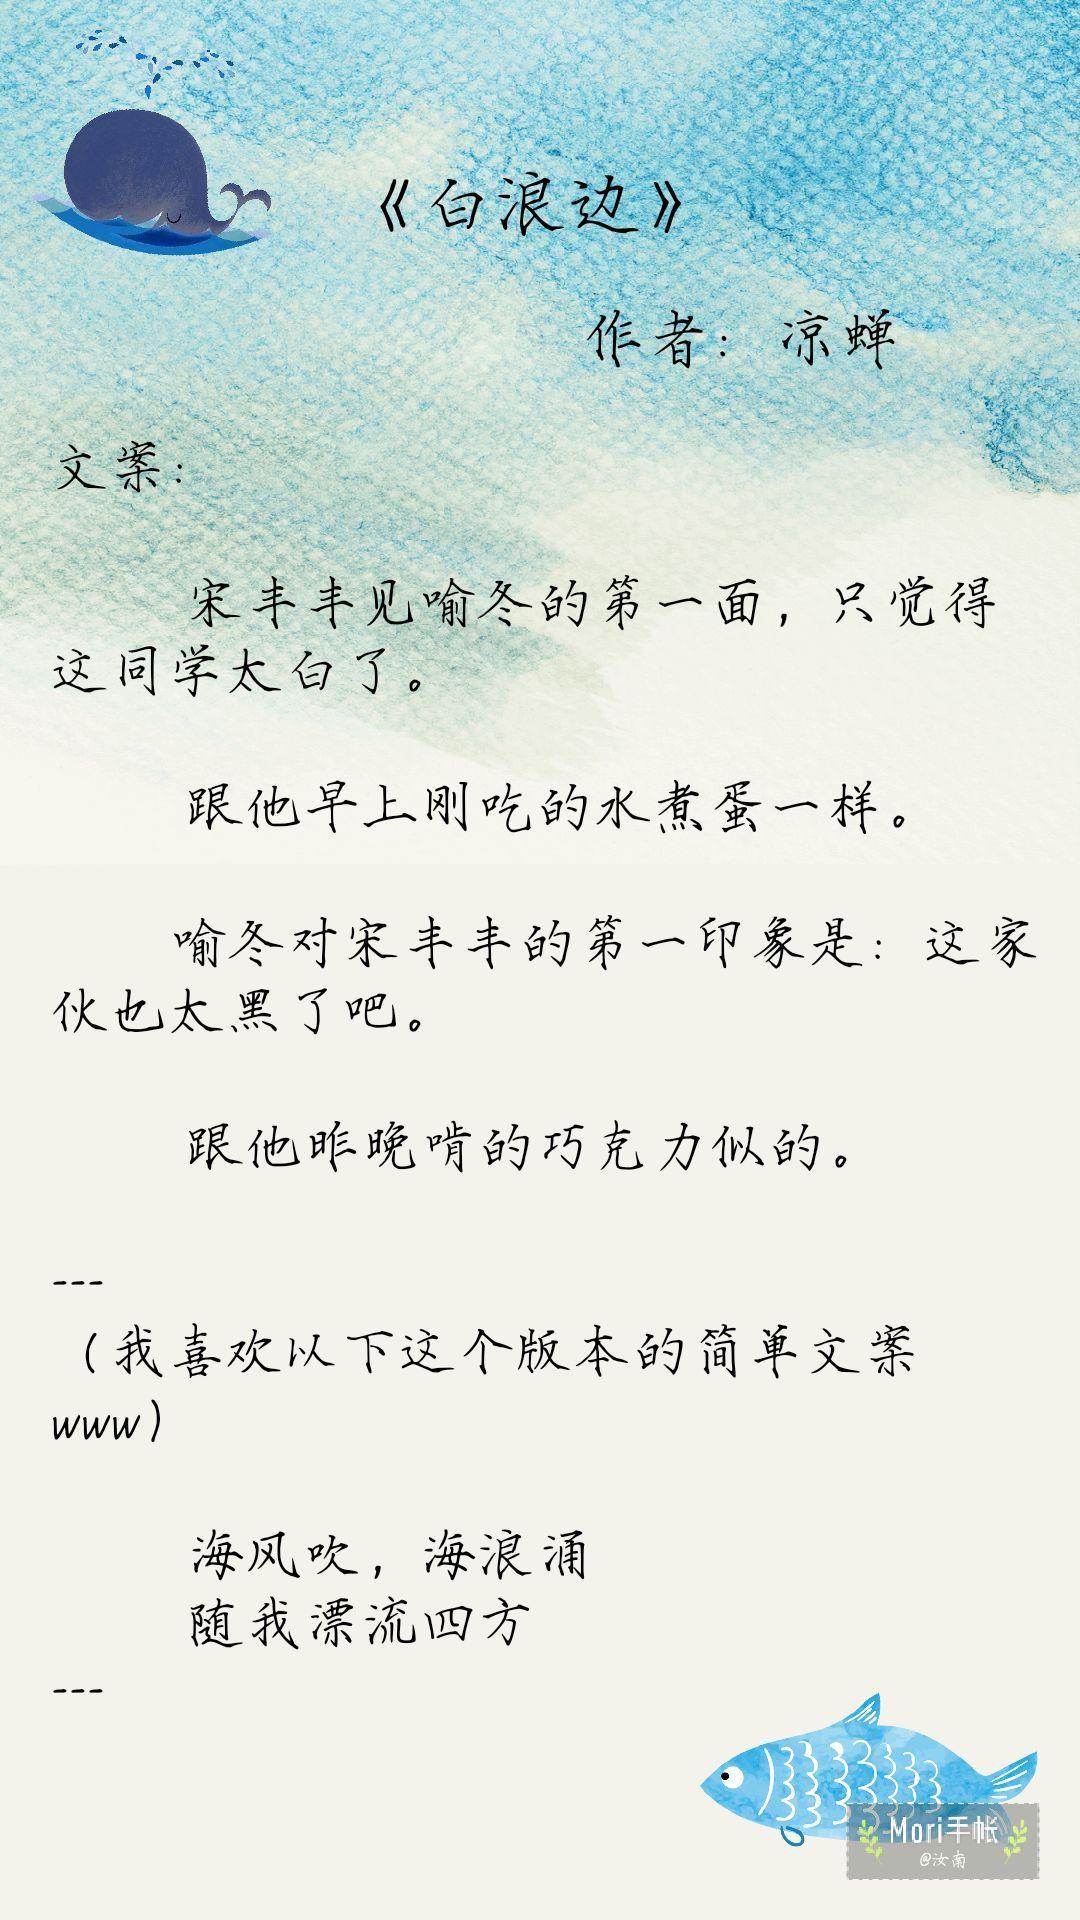 《白浪边》
作者：凉蝉
文案：
宋丰丰见喻冬的第一面，只觉得
这同学太白了。
跟他早上刚吃的水煮蛋一样。
喻冬对宋丰丰的第一印象是：这家
伙也太黑了吧。
跟他昨晚啃的巧克力似的。
---
（我喜欢以下这个版本的简单文案
www）
海风吹，海浪涌
随我漂流四方
---
Mori手帐
@汝南